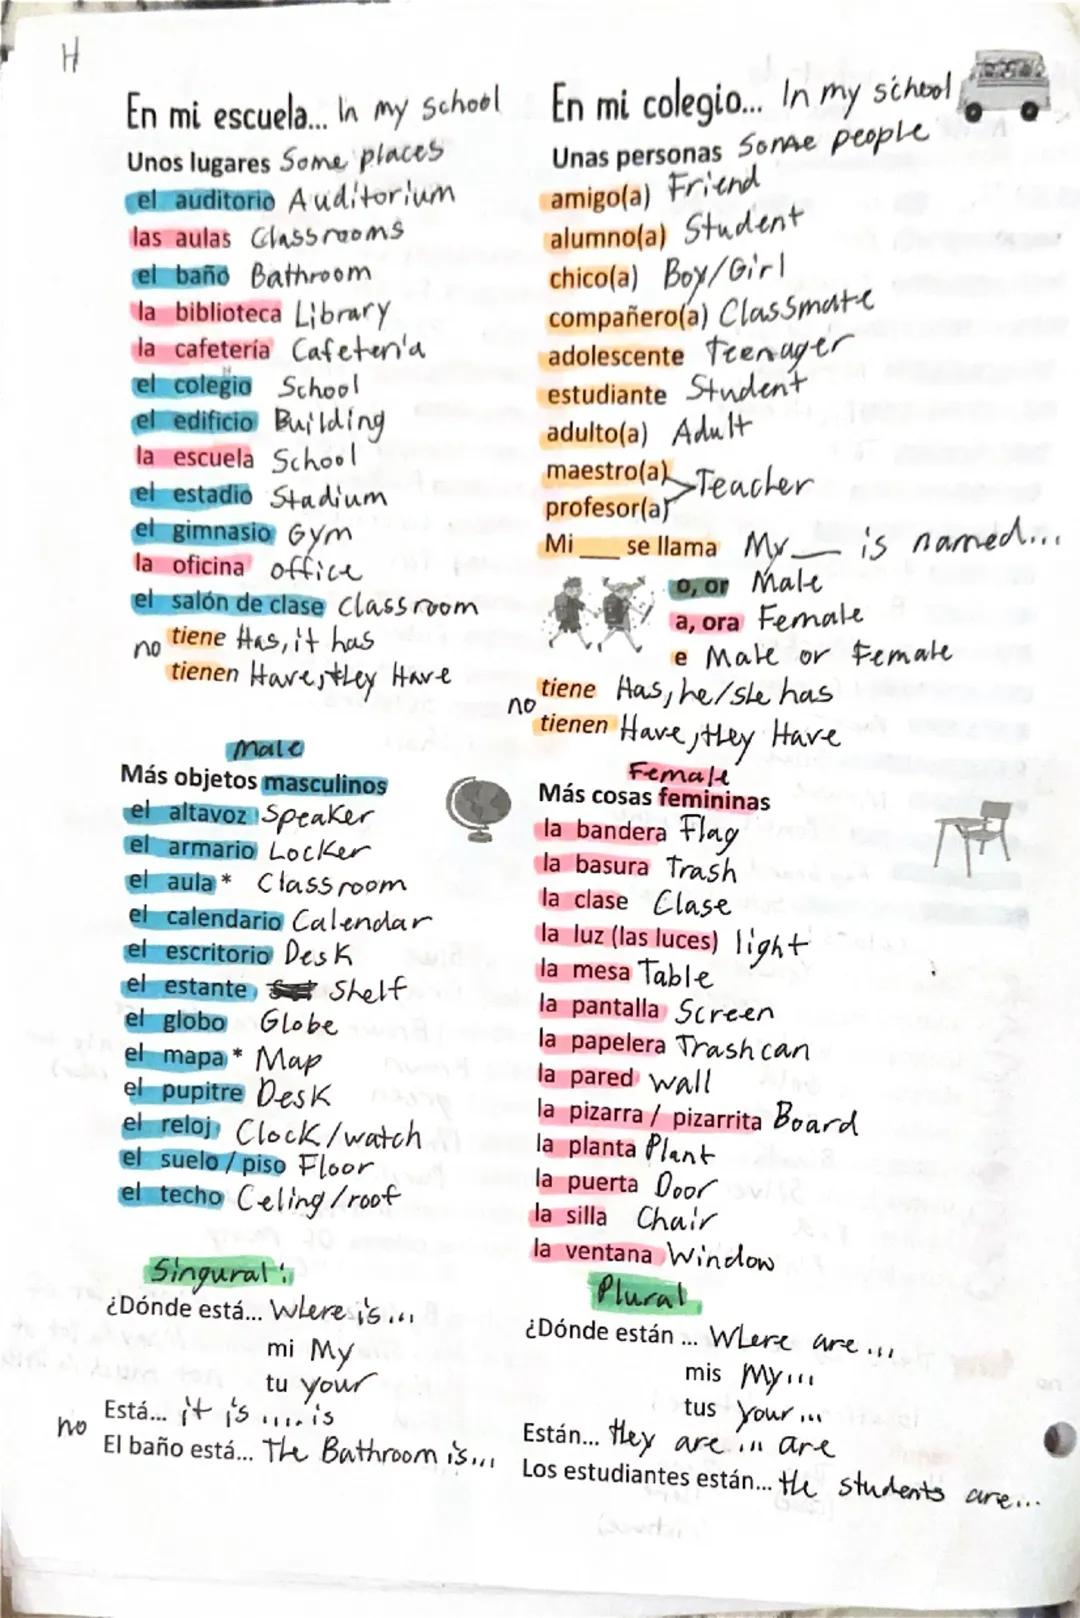 H
En mi escuela... In my school
Unos lugares Some places
el auditorio Auditorium
las aulas Classrooms
el baño Bathroom
la biblioteca Library
la cafetería Cafeteria
el colegio School
el edificio Building
la escuela School
el estadio Stadium
el gimnasio Gym
la oficina office
el salón de clase Classroom
no
tiene Has, it has
tienen Have, they Have
En mi colegio... In my school
Unas personas Some people
amigo(a) Friend
alumno(a) Student
chico(a) Boy/Girl
compañero(a) Classmate
adolescente teenager
estudiante Student
adulto(a) Adult
maestro(a)
profesor(a) >Teacher
Mi __ se llama My __ is named...
o, or Male
a, ora Female
e Male or Female
no
tiene Has, he/she has
tienen Have, they Have
Male
Más objetos masculinos
el altavoz Speaker
el armario Locker
el aula * Classroom
el calendario Calendar
el escritorio Desk
el estante Shelf
el globo Globe
el mapa * Map
el pupitre Desk
el reloj Clock/watch
el suelo / piso Floor
el techo Celing/roof
Female
Más cosas femininas
la bandera Flag
la basura Trash
la clase Clase
la luz (las luces) light
la mesa Table
la pantalla Screen
la papelera Trashcan
la pared wall
la pizarra / pizarrita Board
la planta Plant
la puerta Door
la silla Chair
la ventana Window
Singural:
¿Dónde está... Where is...
mi My
tu your
Está... it is ..... is
no
El baño está... The Bathroom is...
Plural
¿Dónde están ... Where are ...
mis My...
tus your...
Están... they are ... are
Los estudiantes están... the students are...